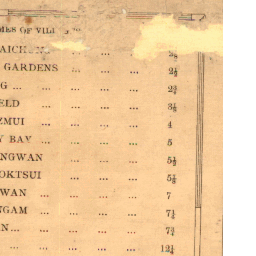 MES OF VILL
AICH
GARDENS ... ... ... 2½
G ... ... ... ... 2¾
ELD ... ... ... 3⅛
ZMUI ... ... ... 4
Y BAY ... ... ... 5
NGWAN ... ... ... 5½
OKTSUI ... ... ... 5⅝
WAN ... ... ... 7
NGAM ... ... ... 7½
N... ... ... ...
... ... ... ... 12¼